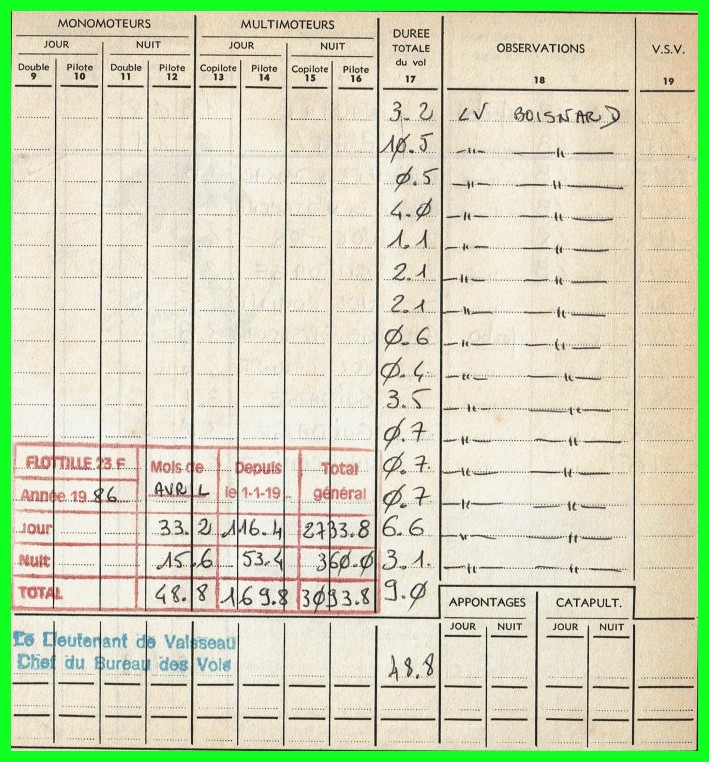 MONOMOTEURS MULTIMOTEURS DUREE TOTALE du vol OBSERVATIONS V.S.V.
JOUR NUIT JOUR NUIT
Double Pilote Double Pilote Copilote Pilote Copilote Pilote
9 10 11 12 13 14 15 16 17 18 19
3.2 LV BOISNARD
1Ø.5 —"— —"—
Ø.5 —"— —"—
4.Ø —"— —"—
1.1 —"— —"—
2.1 —"— —"—
2.1 —"— —"—
Ø.6 —"— —"—
Ø.4 —"— —"—
3.5 —"— —"—
Ø.7 —"— —"—
FLOTTILLE 23 F Mois de Depuis Total Ø.7 —"— —"—
Année 19 86 AVRIL le 1-1-19 général Ø.7 —"— —"—
Jour 33.2 116.4 2733.8 6.6 —"— —"—
Nuit 15.6 53.4 36Ø.Ø 3.1. —"— —"—
TOTAL 48.8 169.8 3Ø93.8 9.Ø
APPONTAGES CATAPULT.
JOUR NUIT JOUR NUIT
Le Lieutenant de Vaisseau
Chef du Bureau des Vols 48.8